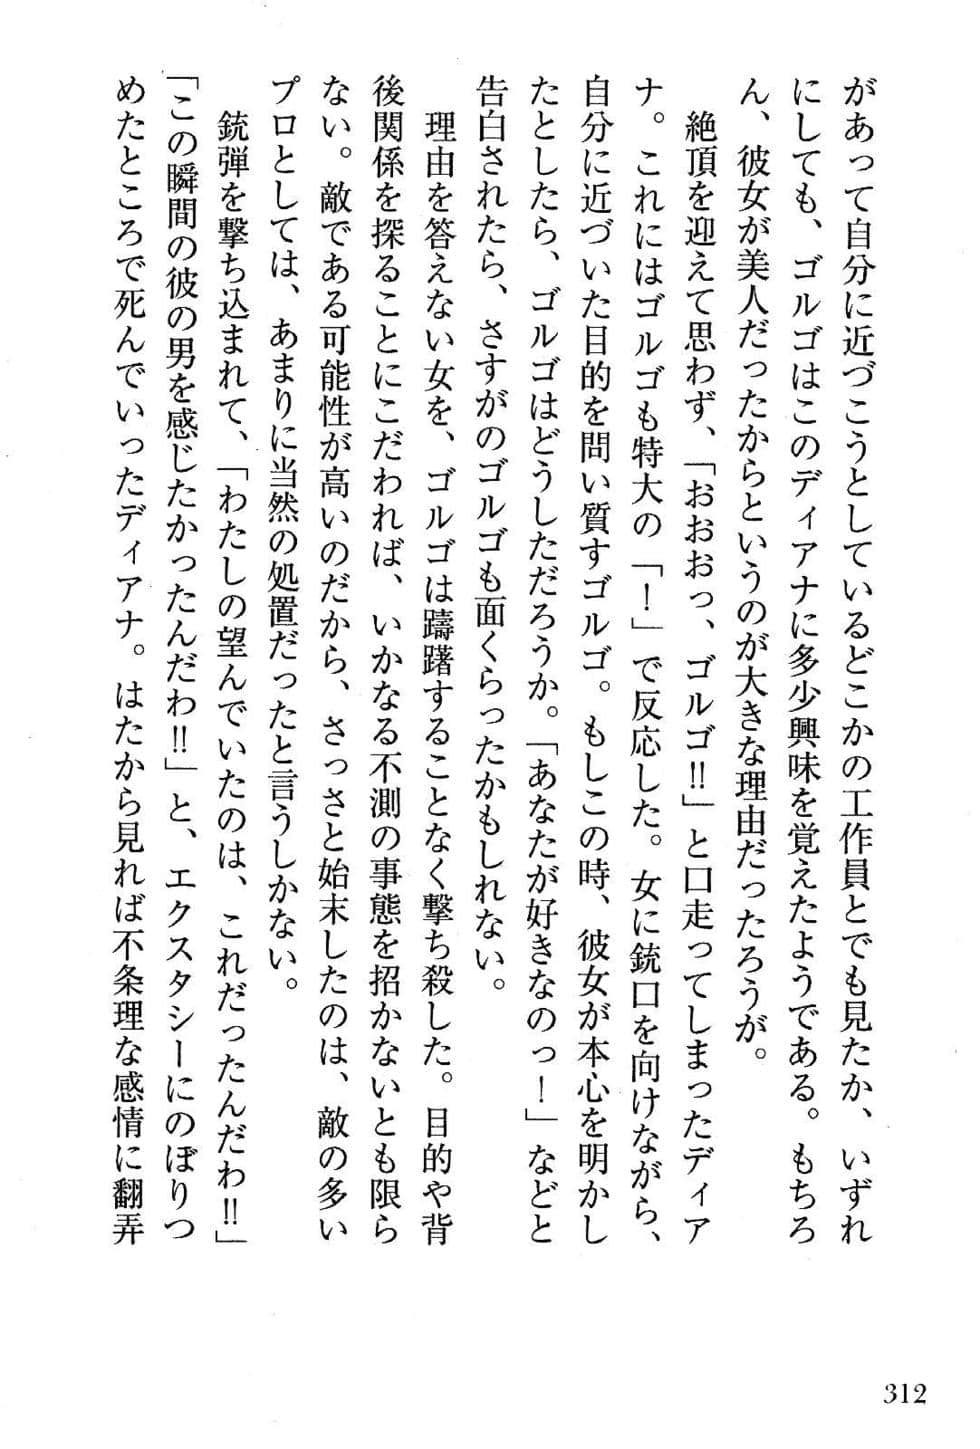 があって自分に近づこうとしているどこかの工作員とでも見たか、いずれ
にしても、ゴルゴはこのディアナに多少興味を覚えたようである。もちろ
ん、彼女が美人だったからというのが大きな理由だったろうが。
　絶頂を迎えて思わず、「おおおっ、ゴルゴ!!」と口走ってしまったディア
ナ。これにはゴルゴも特大の「！」で反応した。女に銃口を向けながら、
自分に近づいた目的を問い質すゴルゴ。もしこの時、彼女が本心を明かし
たとしたら、ゴルゴはどうしただろうか。「あなたが好きなのっ！」などと
告白されたら、さすがのゴルゴも面くらったかもしれない。
　理由を答えない女を、ゴルゴは躊躇することなく撃ち殺した。目的や背
後関係を探ることにこだわれば、いかなる不測の事態を招かないとも限ら
ない。敵である可能性が高いのだから、さっさと始末したのは、敵の多い
プロとしては、あまりに当然の処置だったと言うしかない。
　銃弾を撃ち込まれて、「わたしの望んでいたのは、これだったんだわ!!」
「この瞬間の彼の男を感じたかったんだわ!!」と、エクスタシーにのぼりつ
めたところで死んでいったディアナ。はたから見れば不条理な感情に翻弄
312